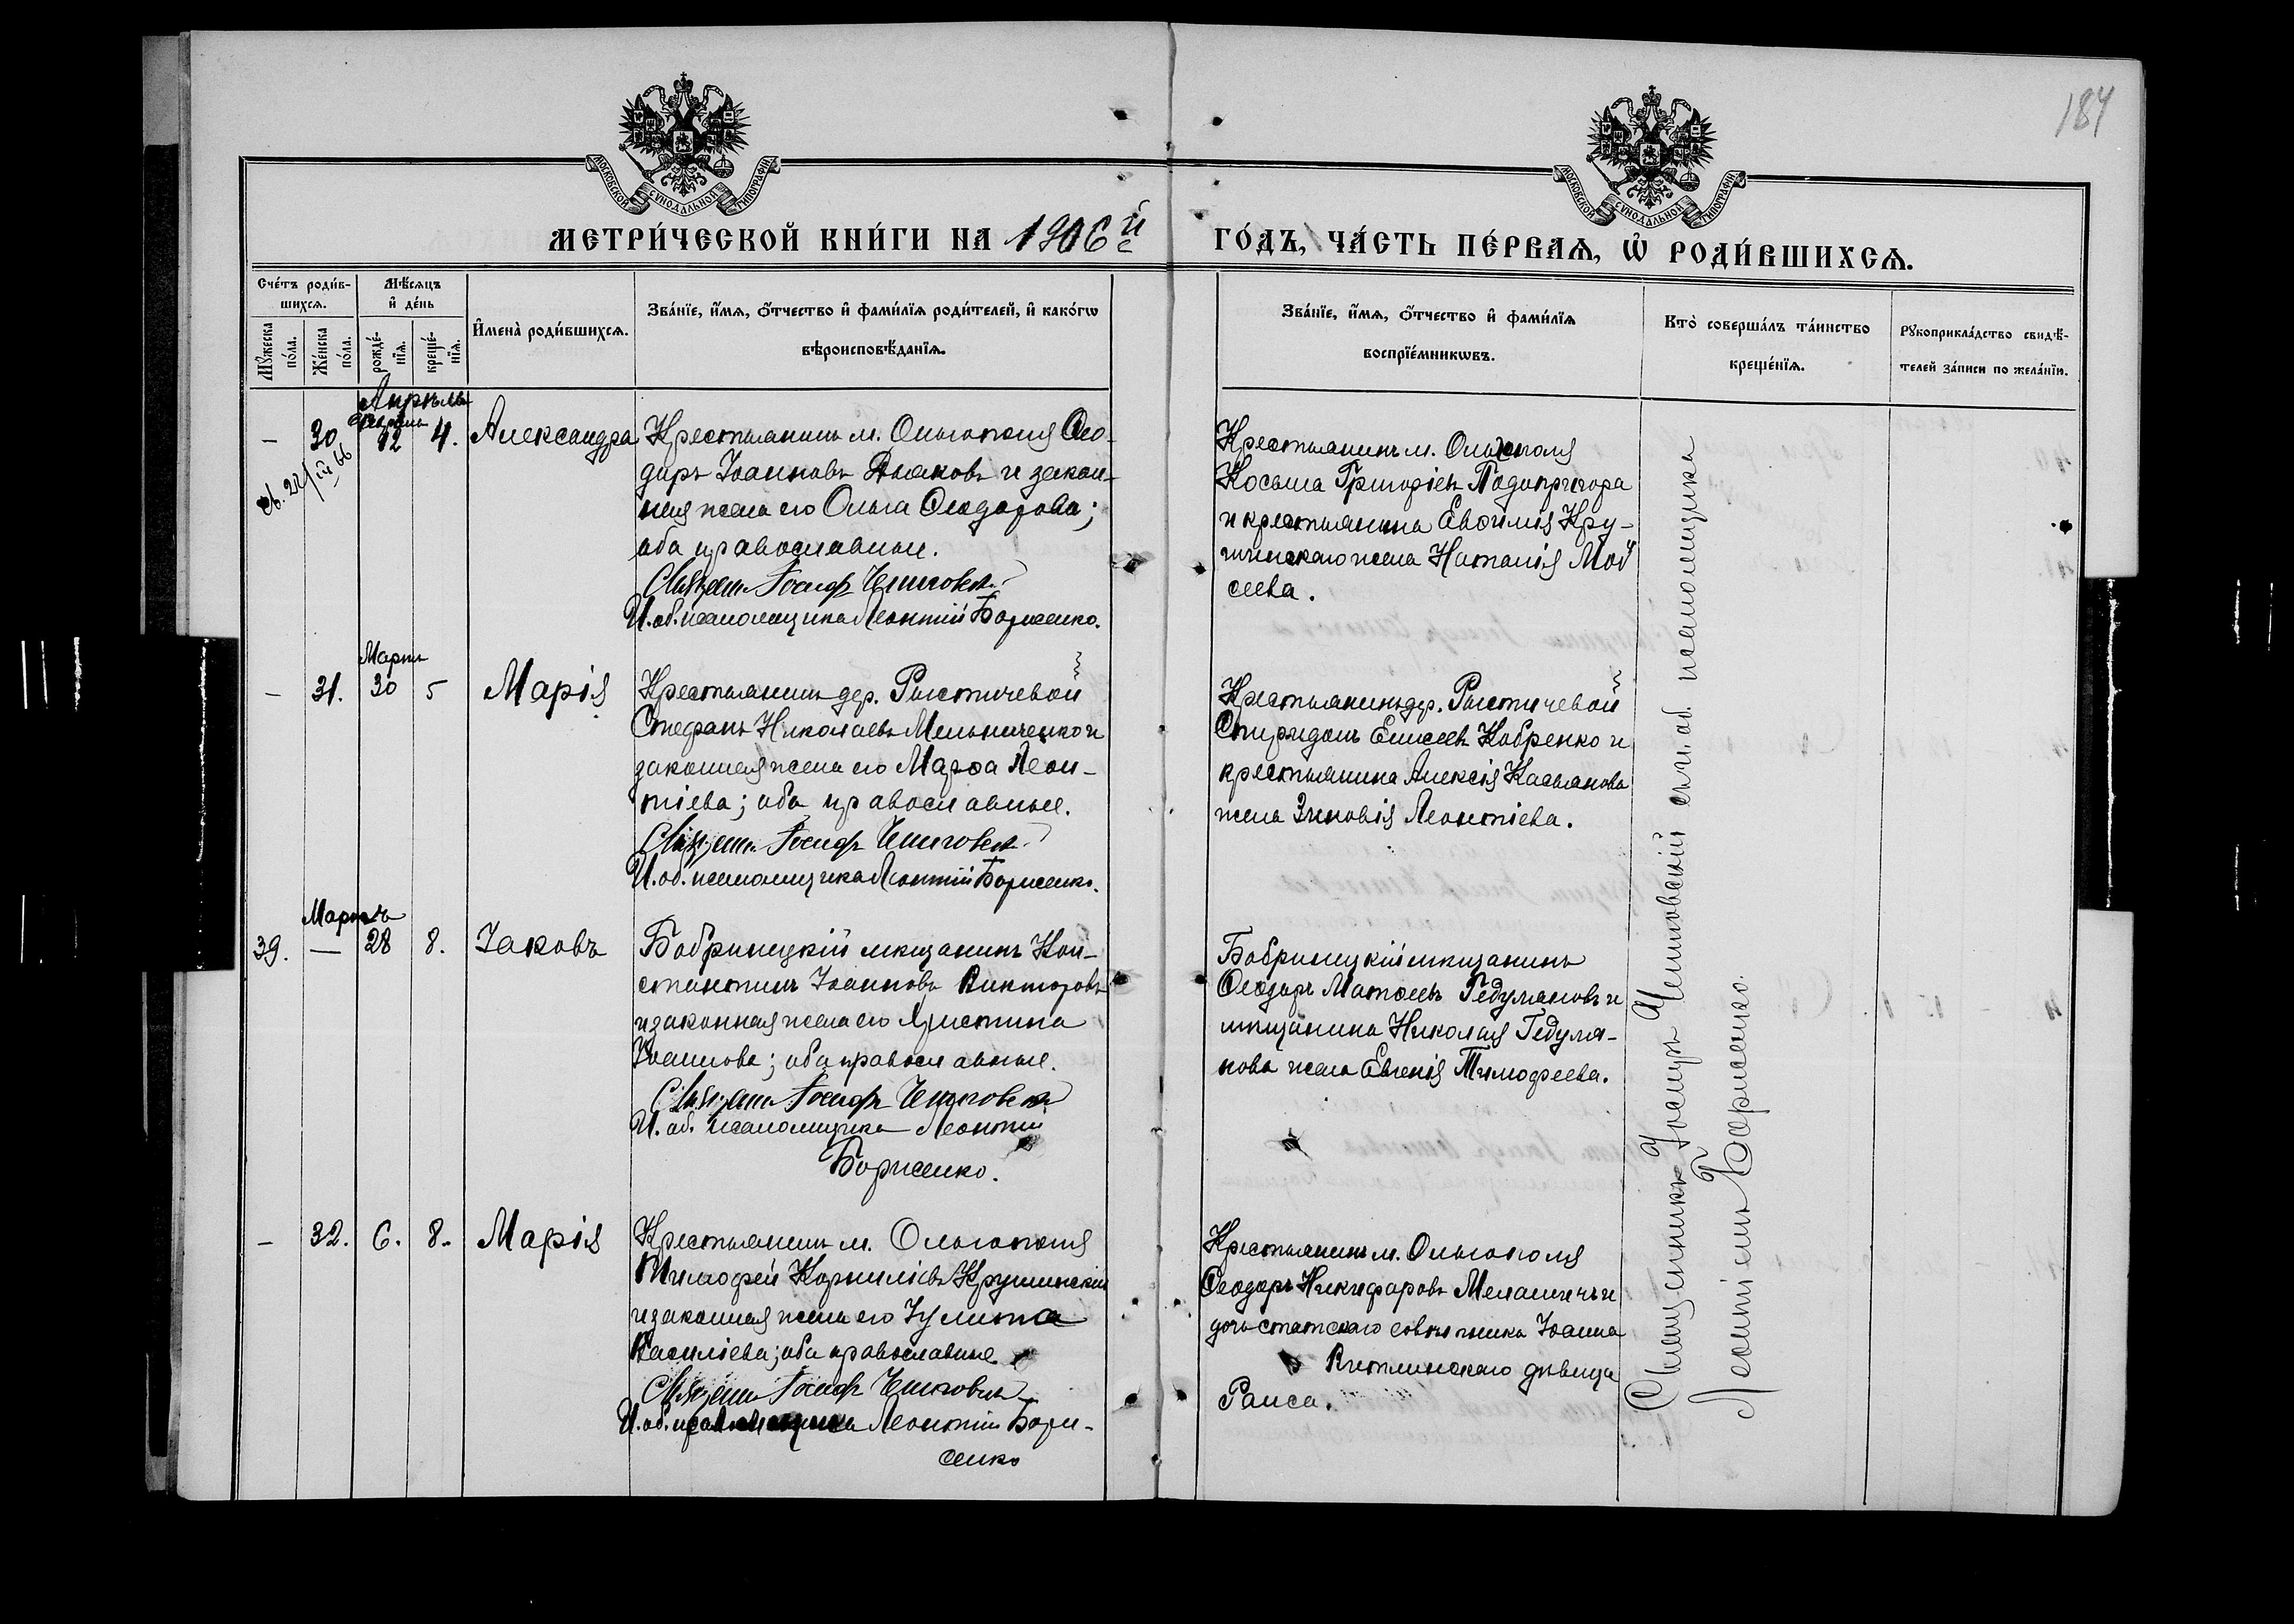 184
МОСКОВСКОЙ СѴНОДАЛЬНОЙ ТИПОГРАФІИ
МОСКОВСКОЙ СѴНОДАЛЬНОЙ ТИПОГРАФІИ
МЕТРИ́ЧЕСКОЙ КНИ́ГИ НА 1906й
ГО́ДЪ, ЧА́СТЬ ПЕ́РВАѦ, Ѡ҆ РОДИ́ВШИХСѦ.
Сче́тъ роди́в-
шихсѧ.
Мꙋ́жеска по́ла.
Же́нска по́ла.
Мѣ́сѧцъ
и҆ де́нь
рожде́-нїѧ.
креще́-нїѧ.
И҆мена̀ роди́вшихсѧ.
Зва́нїе, и҆́мѧ, о҆́тчество и҆ фами́лїѧ роди́телей, и҆ како́гѡ
вѣроисповѣ́данїѧ.
Зва́нїе, и҆́мѧ, о҆́тчество и҆ фами́лїѧ
воспрїе́мникѡвъ.
Кто̀ соверша́лъ та́инство
креще́нїѧ.
Рꙋкоприкла́дство свидѣ́-
телей за́писи по жела́нїю.
Апрѣль
– 30 12 4. Александра
Крестьянинъ м. Ольгополя Ѳео-
доръ Іоанновъ Дьяковъ и закон-
ная жена его Ольга Ѳеодорова;
оба православные.
Священ. Іосифъ Чешковскій
И. об. псаломщика Леонтій Борисенко.
Крестьянинъ м. Ольгополя
Косьма Григоріевъ Подопригора
и крестьянина Евѳимія Кру-
шинскаго жена Наталія Мой
сеева.
Мартъ
– 31. 30 5 Марія
Крестьянинъ дер. Рыстичевой
Стефанъ Николаевъ Мельниченко и
законная жена его Марѳа Леон-
тіева; оба православные.
Священ. Іосифъ Чешковскій
И. об. псаломщика Леонтій Борисенко.
Крестьянинъ дер. Рыстичевой
Спиридонъ Елисеевъ Кобренко и
крестьянина Алексія Касьянова
жена Зиновія Леонтіева.
Мартъ
39. – 28 8. Іаковъ
Бобринецкій мѣщанинъ Кон-
стантинъ Іоанновъ Викторовъ
и законная жена его Христина
Іоаннова; оба православные.
Священ. Іосифъ Чешковскій
И. об. псаломщика Леонтій
Борисенко.
Бобринецкій мѣщанинъ
Ѳеодоръ Матѳеевъ Гедулановъ и
мѣщанина Николая Гедуля-
нова жена Евгенія Тимофеева.
– 32. 6. 8. Марія
Крестьянинъ м. Ольгополя
Тимофей Корниліевъ Крушинскій
и законная жена его Іулитта
Василіева; оба православные
Священ. Іосифъ Чешковскій
И. об. псаломщика Леонтій Бори-
сенко
Крестьянинъ м. Ольгополя
Ѳеодоръ Никифоровъ и
дочь статскаго совѣтника Іоанна
дѣвица
Раиса.
Священникъ Іосифъ Чешковскій съ и. об. псаломщика
Леонтіемъ Борисенко.